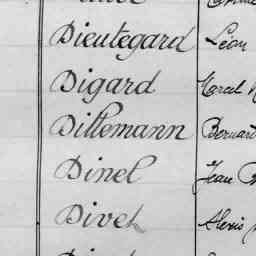 Dieutegard Léon
Digard Marcel
Dillemann Bernard
Dinel Jean
Divet Alexis